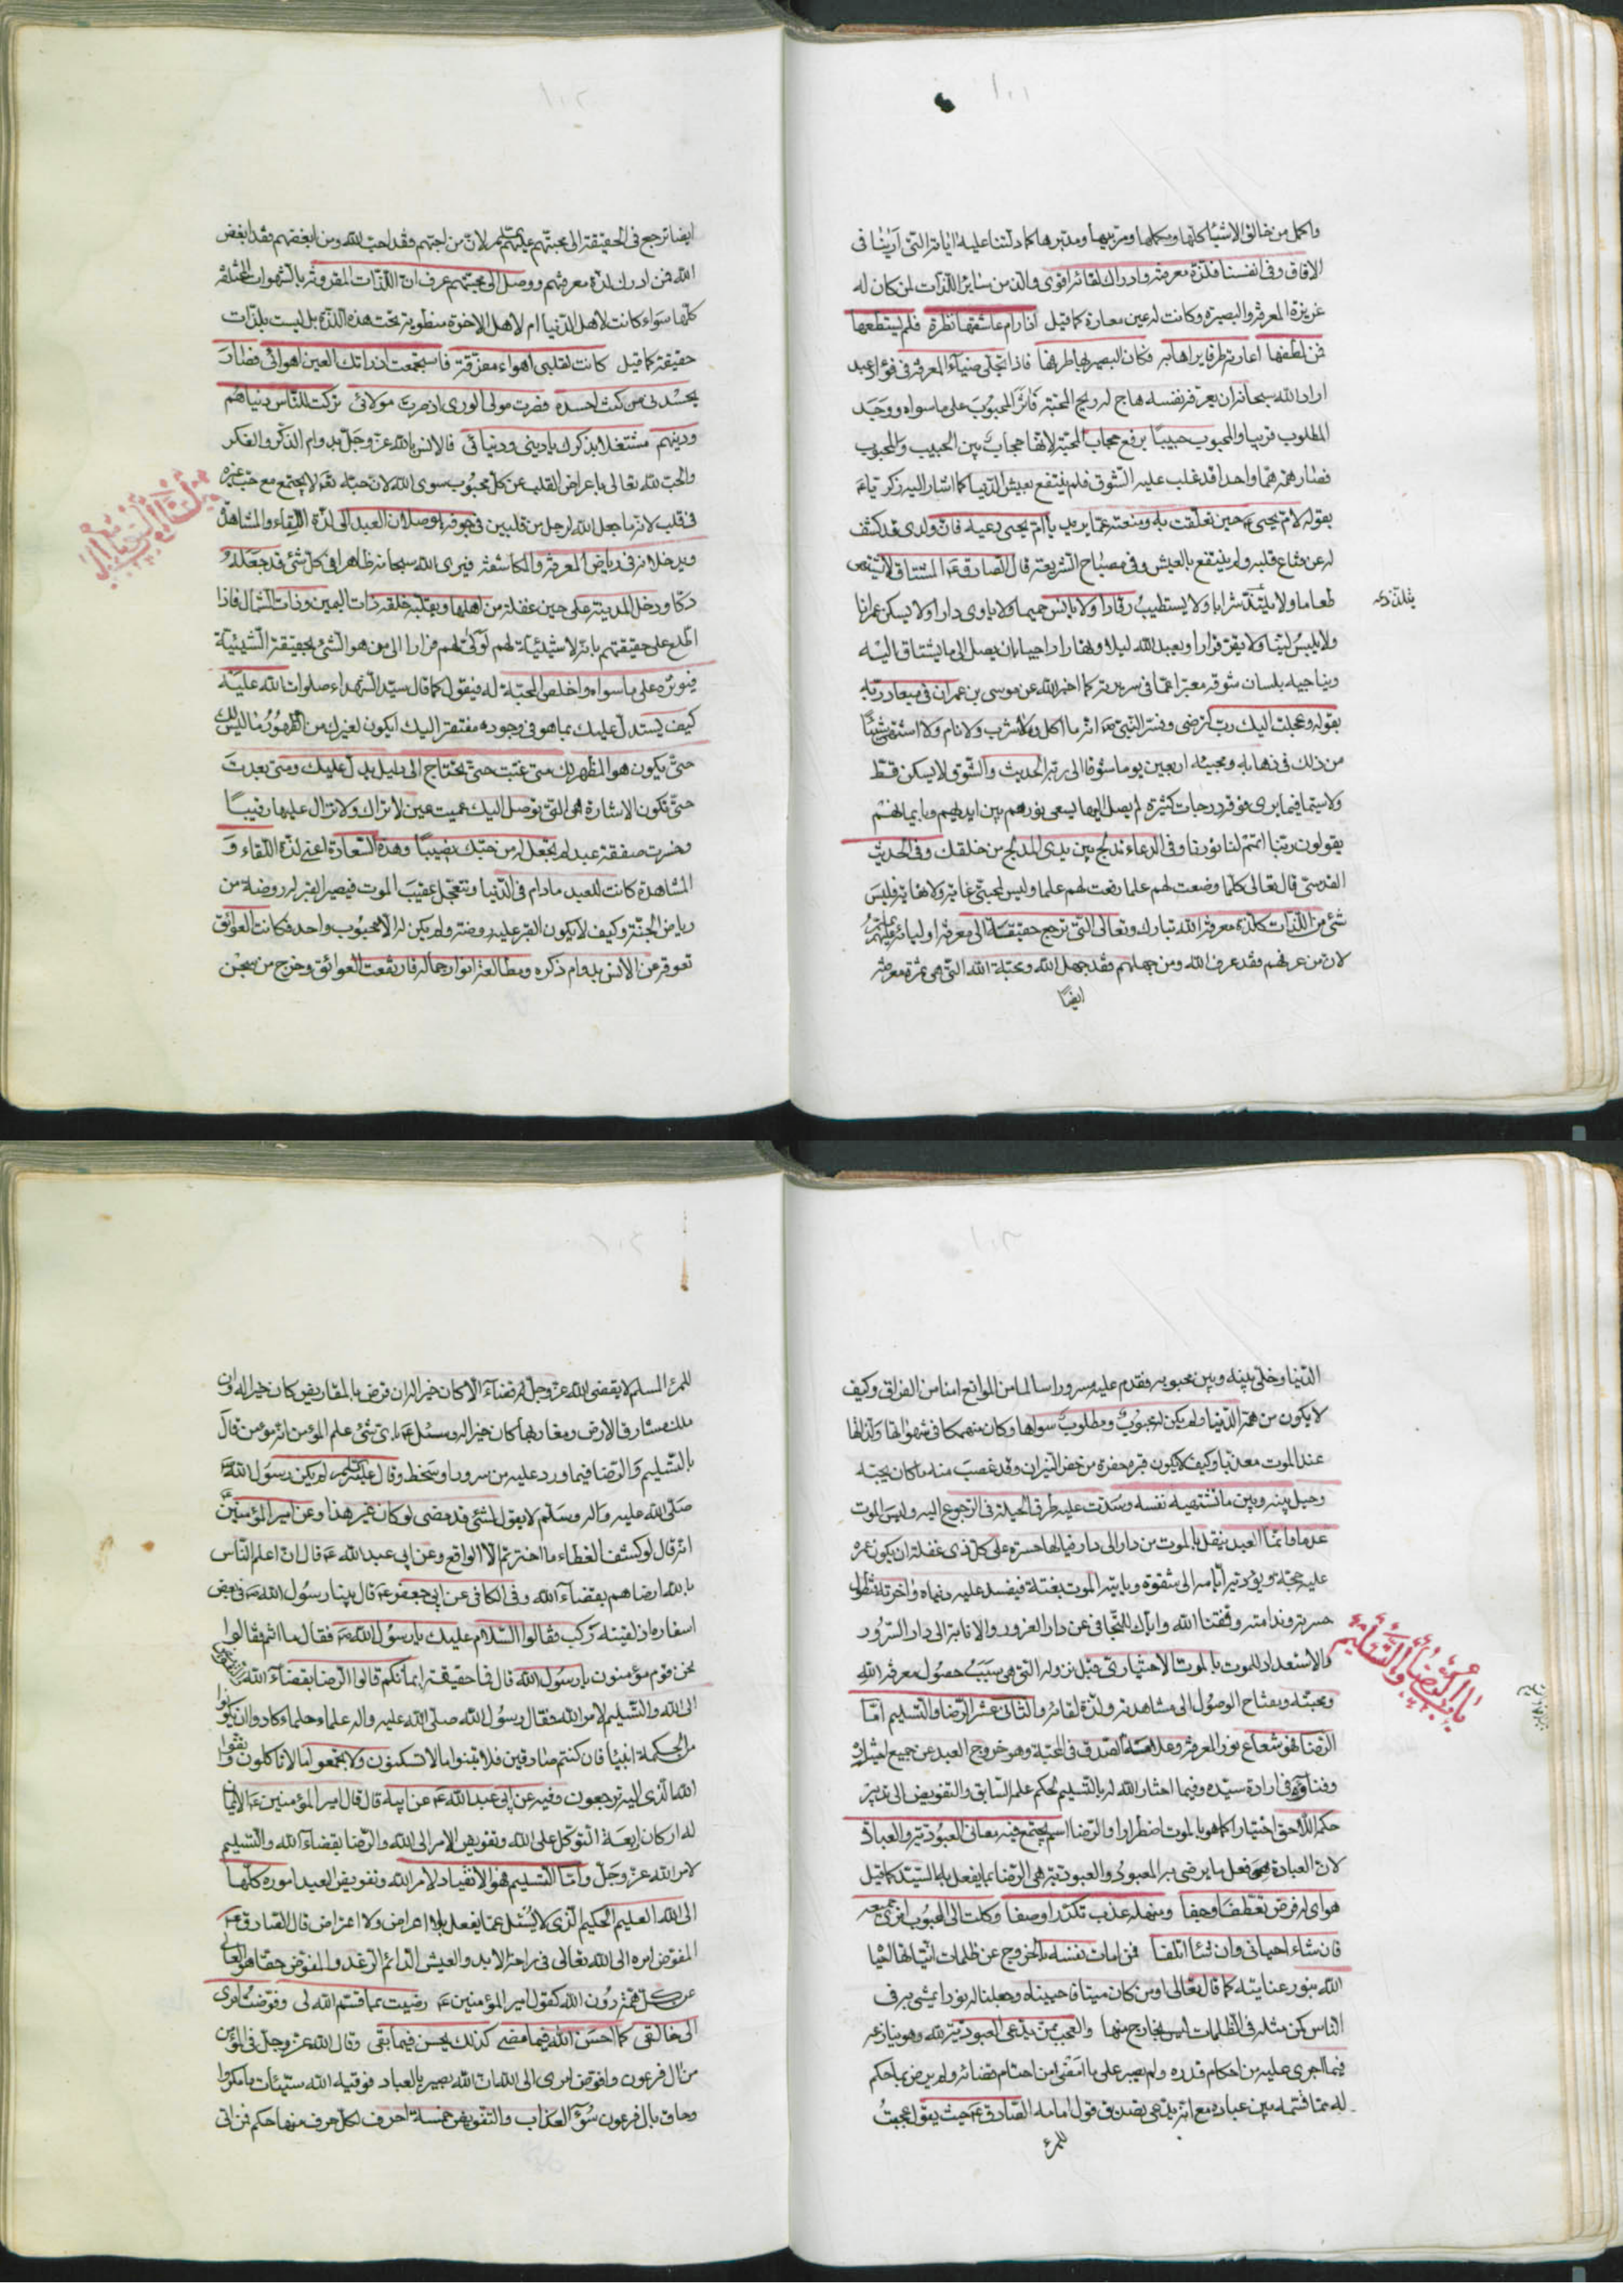 ۱۰۱
واكمل من خالق الاشياء كلها ومكملها ومربيها ومدبرها كما دلتنا عليه اياته التى ارينا فى
الافاق وفى انفسنا فلذة معرفته وادراك لقائه اقوى والذ من سائر اللذات لمن كان له
غريزة المعرفة والبصيرة وكانت له عين معارة كما قيل اذا رام عاشقها نظرة فلم يستطعها
فمن لطفها اعارته طرفا يراها به فكان البصير لها طرفها فاذا تجلى ضياء المعرفة فى فؤاد عبد
اراد الله سبحانه ان يعرفه نفسه هاج له ريح المحبة فاثر المحبوب على ما سواه ووجد
المطلوب قريبا والمحبوب حبيبا برفع حجاب المحبة لانها حجاب بين الحبيب والمحبوب
فصار همه هما واحدا قد غلب عليه الشوق فلم ينتفع بعيش الدنيا كما اشار اليه زكريا ع
بقوله لام يحيى ع حين تعلقت به ومنعته عما يريد يا ام يحيى دعيه فان ولدى قد كشف
له عن قناع قلبه ولم ينتفع بالعيش وفى مصباح الشريعة قال الصادق ع المشتاق لا يشتهى
طعاما ولا يلتذ شرابا ولا يستطيب رقادا ولا يانس حميما ولا ياوى دارا ولا يسكن عمرانا
ولا يلبس لينا ولا يقر قرارا ويعبد الله ليلا ونهارا راجيا بان يصل الى ما يشتاق اليه
ويناجيه بلسان شوقه معبرا عما فى سريرته كما اخبر الله عن موسى بن عمران فى ميعاد ربه
بقوله وعجلت اليك رب لترضى وفسر النبى ص انه ما اكل ولا شرب ولا نام ولا اشتهى شيئا
من ذلك فى ذهابه ومجيئه اربعين يوما شوقا الى ربه الحديث والشوق لا يسكن قط
ولا سيما فيما يرى فوقه درجات كثيرة لم يصل اليها يسعى نورهم بين ايديهم وبايمانهم
يقولون ربنا اتمم لنا نورنا وفى الدعاء تدلج بين يدى المدلج من خلقك وفى الحديث
القدسى قال تعالى كلما وضعت لهم علما رفعت لهم علما وليس لمحبتى غاية ولا نهاية فليس
شئ من اللذات كلذة معرفة الله تبارك وتعالى التى ترجع حقيقة الى معرفة اوليائه
لان من عرفهم فقد عرف الله ومن جهلهم فقد جهل الله ومحبة الله التى هى ثمرة معرفته
ايضا
يلتذ
۱۰۲
ايضا ترجع فى الحقيقة الى محبتهم لان من احبهم فقد احب الله ومن ابغضهم فقد ابغض
الله فمن ادرك لذة معرفتهم ووصل الى محبتهم عرف ان اللذات المقرونة بالشهوات المختلفة
كلها سواء كانت لاهل الدنيا ام لاهل الاخرة منطوية تحت هذه اللذة بل ليست بلذات
حقيقة كما قيل كانت لقلبى اهواء مفرقة فاستجمعت اذ راتك العين اهوائى فصار
يحسدنى من كنت احسده وصرت مولى الورى اذ صرت مولائى تركت للناس دنياهم
ودينهم مشتغلا بذكرك يا دينى ودنيائى فالانس بالله عز وجل بدوام الذكر والفكر
والحب لله تعالى باعراض القلب عن كل محبوب سوى الله لان حبه لا يجتمع مع حب غيره
فى قلب لانه ما جعل الله لرجل من قلبين فى جوفه يوصلان العبد الى لذة اللقاء والمشاهدة
ويدخلانه فى رياض المعرفة والمكاشفة فيرى الله سبحانه ظاهرا فى كل شئ قد جعله
دكا ودخل المدينة على حين غفلة من اهلها ويقلبه خلقه ذات اليمين وذات الشمال فاذا
اطلع على حقيقتهم بانه لا شيئية لهم لولى منهم فرارا الى من هو الشئ بحقيقة الشيئية
فيؤثره على ما سواه واخلص المحبة له فيقول كما قال سيد الشهداء صلوات الله عليه
كيف يستدل عليك بما هو فى وجوده مفتقر اليك ايكون لغيرك من الظهور ما ليس لك
حتى يكون هو المظهر لك متى غبت حتى تحتاج الى دليل يدل عليك ومتى بعدت
حتى تكون الاشارة هى التى توصل اليك عميت عين لا تراك ولا تزال عليها رقيبا
وخسرت صفقة عبد لم تجعل له من حبك نصيبا وهذه السعادة اعنى لذة اللقاء و
المشاهدة كانت للعبد مادام فى الدنيا وتتعجل عقيب الموت فيصير القبر له روضة من
رياض الجنة وكيف لا يكون القبر عليه روضة ولم يكن له الا محبوب واحد فكانت العوائق
تعوقه من الانس بدوام ذكره ومطالعة انوار جماله فارتفعت العوائق وخرج من سجن
۱۰۳
الدنيا وخلى بينه وبين محبوبه فقدم عليه مسرورا سالما من الموانع امنا من الفراق وكيف
لا يكون من همه الدنيا ولم يكن له محبوب ومطلوب سواها وكان منهمكا فى شهواتها ولذاتها
عند الموت معذبا وكيف لا يكون قبره حفرة من حفر النيران وقد غصب منه ما كان يحبه
وحيل بينه وبين ما تشتهيه نفسه وسدت عليه طرق الحيلة فى الرجوع اليه وليس الموت
عدما وانما العبد ينقل بالموت من دار الى دار فيالها حسرة على كل ذى غفلة ان يكون عمره
عليه حجة ويؤديه ايامه الى شقوة وياتيه الموت بغتة فيفسد عليه دنياه واخرته فتطول
حسرته وندامته وفقنا الله واياك للتجافى عن دار الغرور والانابة الى دار السرور
والاستعداد للموت بالموت الاختيارى قبل نزوله التى هى سبب حصول معرفة الله
ومحبته ومفتاح الوصول الى مشاهدته ولذة لقائه والثانى عشر الرضا والتسليم اما
الرضا فهو شعاع نور المعرفة وعلامة الصدق فى المحبة وهو خروج العبد عن جميع اختياره
وفنائه فى ارادة سيده وفيما اختار الله له بالتسليم لحكم علم السابق والتفويض الى تدبير
حكم اللاحق اختيارا كما هو بالموت اضطرارا والرضا اسم يجتمع فيه معانى العبودية والعبادة
لان العبادة هى فعل ما يرضى به المعبود والعبودية هى الرضا بما يفعل به السيد كما قيل
هواى له فرض تعطف او جفا ومنهله عذب تكدر او صفا وكلت الى المحبوب امرى جميعه
فان شاء احيانى وان شاء اتلفا فمن امات نفسه بالخروج عن ظلمات انيتها احيا
الله بنور عنايته كما قال تعالى اومن كان ميتا فاحييناه وجعلنا له نورا يمشى به فى
الناس كمن مثله فى الظلمات ليس بخارج منها والعجب ممن يدعى العبودية لله وهو ينازعه
فيما اجرى عليه من احكام قدره ولم يصبر على ما امضى من احتام قضائه ولم يرض بما حكم
له مما قسمه بين عباده مع انه يدعى تصديق قول امامه الصادق ع حيث يقول عجبت
للمرء
باب الرضا والتسليم
للمرء المسلم لا يقضى الله عز وجل له قضاء الا كان خيرا له ان قرض بالمقاريض كان خيرا له وان
ملك مشارق الارض ومغاربها كان خيرا له وسئل ع باى شئ علم المؤمن انه مؤمن قال
بالتسليم والرضا فيما ورد عليه من سرور او سخط وقال لم يكن رسول الله
صلى الله عليه واله وسلم لا يقول لشئ قد مضى لو كان غيره هذا وعن امير المؤمنين
انه قال لو كشف الغطاء ما اخترتم الا الواقع وعن ابى عبد الله ع قال ان اعلم الناس
بالله ارضاهم بقضاء الله وفى الكافى عن ابى جعفر ع قال بينا رسول الله ص فى بعض
اسفاره اذ لقيه ركب فقالوا السلام عليك يا رسول الله ص فقال ما انتم فقالوا
نحن قوم مؤمنون يا رسول الله قال فما حقيقة ايمانكم قالوا الرضا بقضاء الله والتفويض
الى الله والتسليم لامر الله فقال رسول الله صلى الله عليه واله علماء حلماء كادوا ان يكونوا
من الحكمة انبياء فان كنتم صادقين فلا تبنوا ما لا تسكنون ولا تجمعوا ما لا تاكلون واتقوا
الله الذى اليه ترجعون وفيه عن ابى عبد الله ع عن ابيه قال قال امير المؤمنين ع الايمان
له اركان اربعة التوكل على الله وتفويض الامر الى الله والرضا بقضاء الله والتسليم
لامر الله عز وجل واما التسليم فهو الانقياد لامر الله وتفويض العبد اموره كلها
الى الله العليم الحكيم الذى لا يسئل عما يفعل بلا اعراض ولا اعتراض قال الصادق ع
المفوض امره الى الله تعالى فى راحة الابد والعيش الدائم الرغد والمفوض حقا هو العالى
عن كل همة دون الله كقول امير المؤمنين ع رضيت بما قسم الله لى وفوضت امرى
الى خالقى كما احسن الله فيما مضى كذلك يحسن فيما بقى وقال الله عز وجل فى المؤمن
من ال فرعون وافوض امرى الى الله ان الله بصير بالعباد فوقيه الله سيئات ما مكروا
وحاق بال فرعون سوء العذاب والتفويض خمسة احرف لكل حرف منها حكم فمن اتى